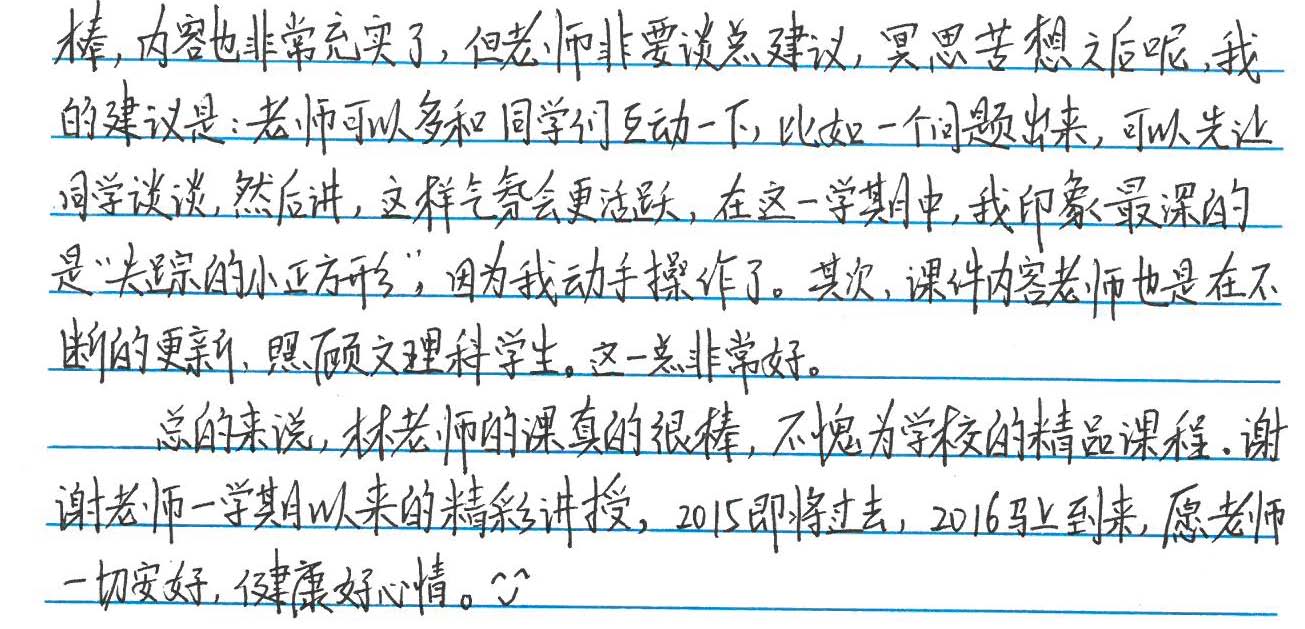 棒，内容也非常充实了，但老师非要谈点建议，冥思苦想之后呢，我
的建议是：老师可以多和同学们互动一下，比如一个问题出来，可以先让
同学谈谈，然后讲，这样气氛会更活跃，在这一学期中，我印象最深的
是“失踪的小正方形”，因为我动手操作了。其次，课件内容老师也是在不
断的更新，照顾文理科学生。这一点非常好。
总的来说，林老师的课真的很棒，不愧为学校的精品课程．谢
谢老师一学期以来的精彩讲授，2015即将过去，2016马上到来，愿老师
一切安好，健康好心情。^◡^